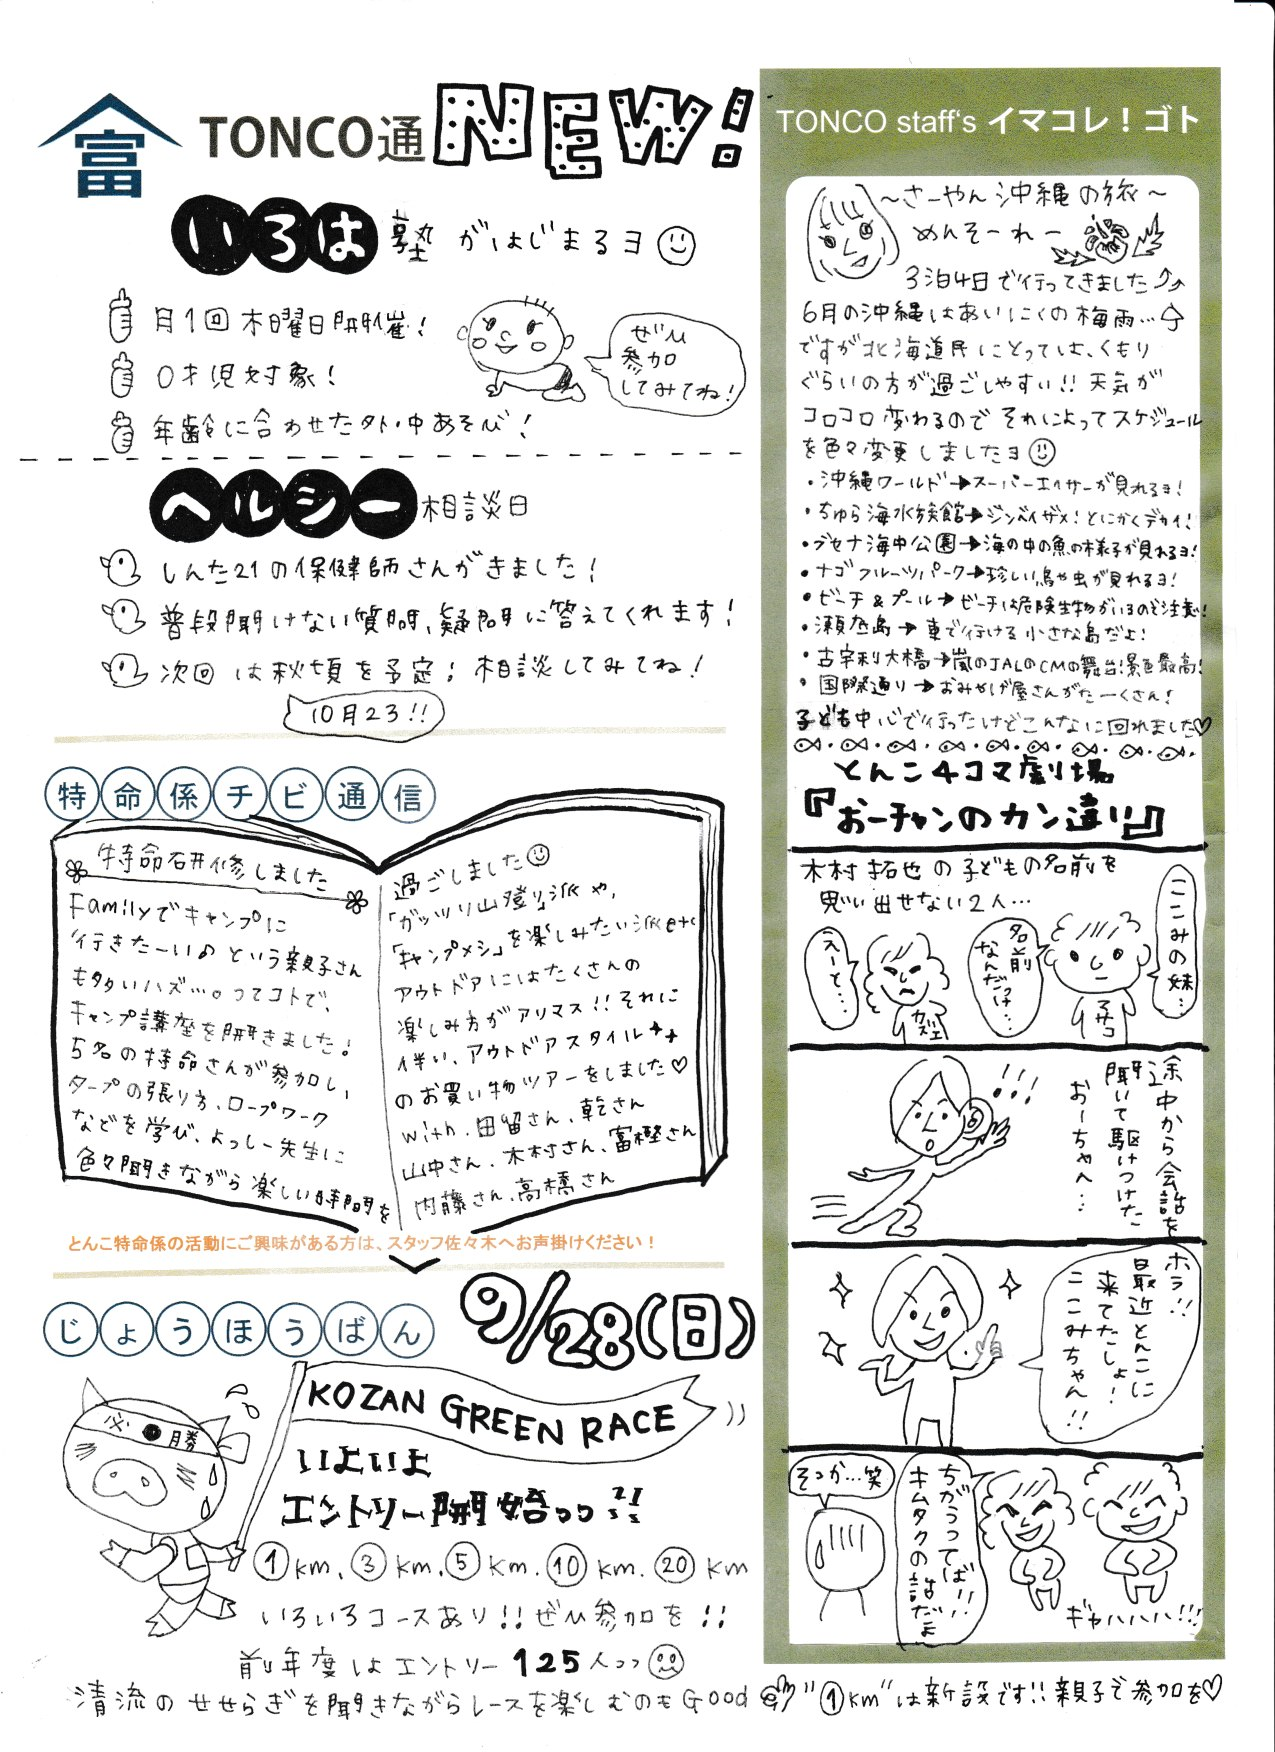 富 TONCO通 NEW!
いろは塾 がはじまるヨ
月1回 木曜日開催!
0才児対象!
年齢に合わせた外・中あそび!
ぜひ
参加
してみてね!
ヘルシー相談日
しんた21の保健師さんがきました!
普段聞けない質問、疑問に答えてくれます!
次回は秋頃を予定! 相談してみてね!
10月23!!
特命係チビ通信
特命研修しました
Familyでキャンプに
行きたーい♪ という親子さん
も多いハズ…。ってコトで、
キャンプ講座を開きました!
5名の特命さんが参加し、
タープの張り方、ロープワーク
などを学び、よっしー先生に
色々聞きながら楽しい時間を
過ごしました
「ガッツリ山登り」派や、
「キャンプメシ」を楽しみたい派etc
アウトドアにはたくさんの
楽しみ方がアリマス!! それに
伴い、アウトドアスタイル
のお買い物ツアーをしました♡
with. 田留さん、乾さん
山中さん、木村さん、富樫さん
内藤さん、高橋さん
とんこ特命係の活動にご興味がある方は、スタッフ佐々木へお声掛けください!
じょうほうばん
9/28(日)
必勝
KOZAN GREEN RACE
いよいよ
エントリー開始っっ!!
①km、③km、⑤km、⑩km、⑳km
いろいろコースあり!! ぜひ参加を!!
前年度はエントリー125人っっ
清流のせせらぎを聞きながらレースを楽しむのもGood "①km"は新設です!! 親子で参加を♡
TONCO staff's イマコレ!ゴト
〜さーやん沖縄の旅〜
めんそーれー
3泊4日で行ってきました
6月の沖縄はあいにくの梅雨…
ですが北海道民にとっては、くもり
ぐらいの方が過ごしやすい!! 天気が
コロコロ変わるのでそれによってスケジュール
を色々変更しましたヨ
・沖縄ワールド→スーパーエイサーが見れるヨ!
・ちゅら海水族館→ジンベイザメ!とにかくデカイ!
・ブセナ海中公園→海の中の魚の様子が見れるヨ!
・ナゴフルーツパーク→珍しい鳥や虫が見れるヨ!
・ビーチ&プール→ビーチは危険生物がいるので注意!
・瀬底島→車で行ける小さな島だよ!
・古宇利大橋→嵐のJALのCMの舞台!景色最高!
・国際通り→おみやげ屋さんがたーくさん!
子ども中心で行ったけどこんなに回れました♡
とんこ4コマ劇場
『おーチャンのカン違い』
木村拓也の子どもの名前を
思い出せない2人…
ここみの妹…
名前
なんだっけ…
えーと…
マサコ
カズエ
途中から会話を
聞いて駆けつけた
おーちゃん…
!!!
ホラ!!
最近とんこに
来てたしょ!
ここみちゃん!!
ちがうってば!!
キムタクの話だよ
そっか…笑
ギャハハハハ!!!